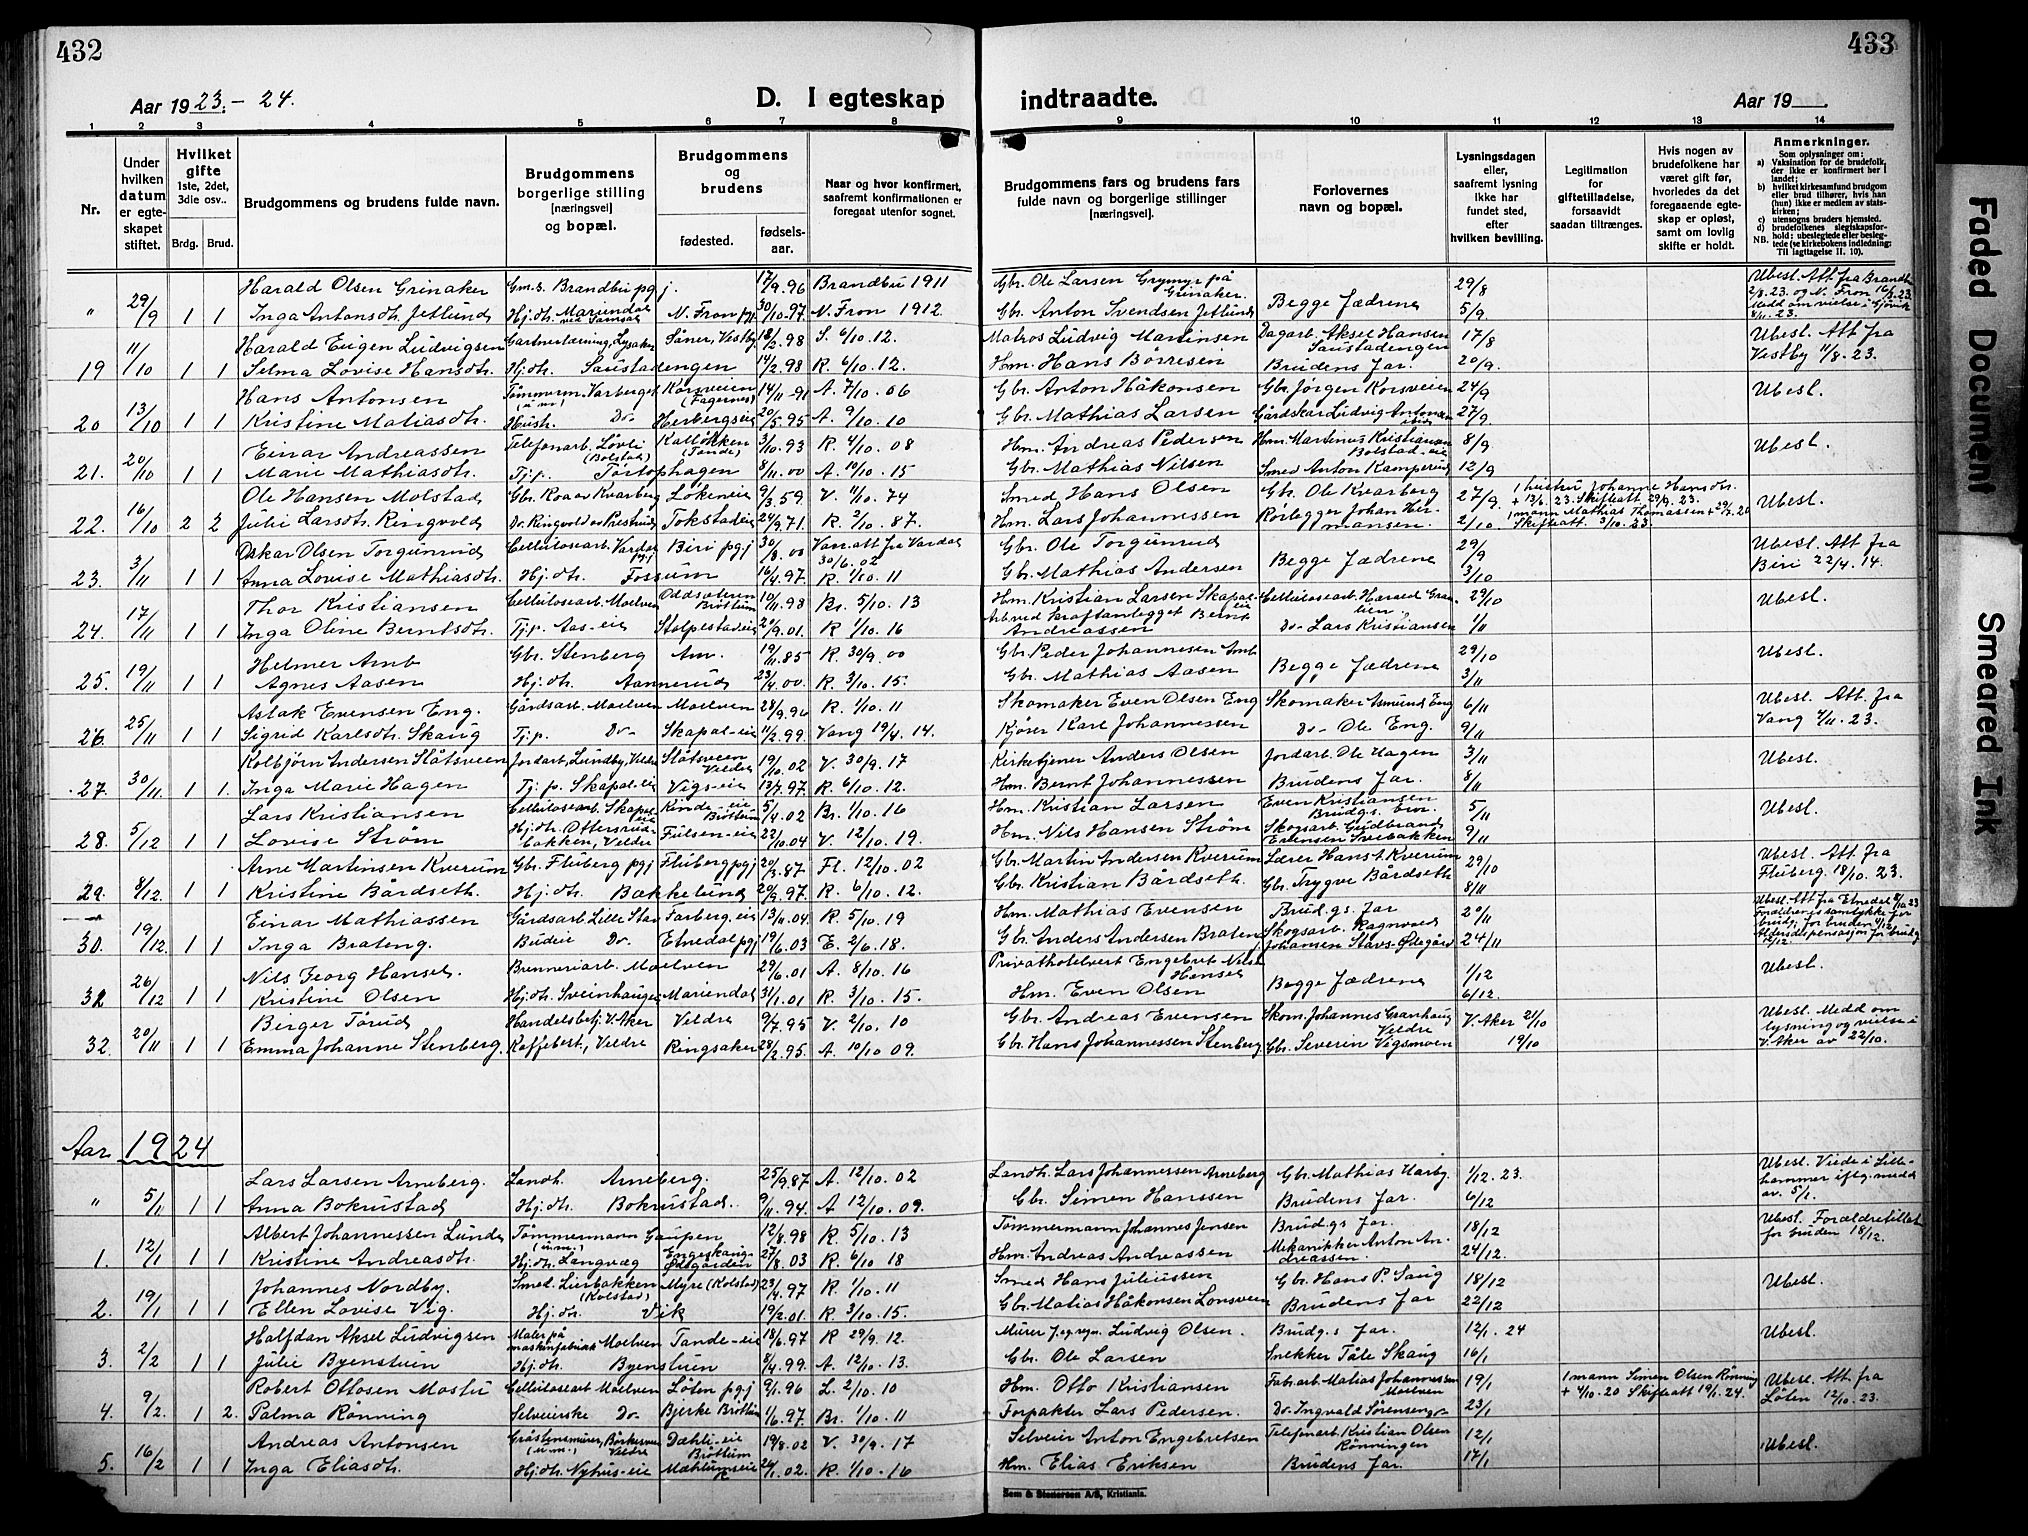 432
433
Aar 1923.-24.
D. I egteskap
indtraadte.
Aar 19
1 2 3 4 5 6 7 8 9 10 11 12 13 14
Nr.
Under hvilken datum er egteskapet stiftet.
Hvilket gifte 1ste, 2det, 3die osv..
Brdg. Brud.
Brudgommens og brudens fulde navn.
Brudgommens borgerlige stilling [næringsvei] og bopæl.
Brudgommens og brudens
fødested.
fødsels-aar.
Naar og hvor konfirmert, saafremt konfirmationen er foregaat utenfor sognet.
Brudgommens fars og brudens fars fulde navn og borgerlige stillinger [næringsvei].
Forlovernes navn og bopæl.
Lysningsdagen eller, saafremt lysning ikke har fundet sted, efter hvilken bevilling.
Legitimation for giftetilladelse, forsaavidt saadan tiltrænges.
Hvis nogen av brudefolkene har været gift før, hvorledes da det foregaaende egteskap er opløst, samt om lovlig skifte er holdt.
Anmerkninger.
Som oplysninger om:
a) Vaksination for de brudefolk, der ikke er konfirmert her i landet;
b) hvilket kirkesamfund brudgom eller brud tilhører, hvis han (hun) ikke er medlem av statskirken;
c) utensogns bruders hjemsted.
d) brudefolkenes slegtskapsforhold: ubeslegtede eller beslegtede (se kirkebokens indledning: NB. Til iagttagelse II. 10).
Harald Olsen Grinaker Gms. Brandbu pgj. 17/9.96 Brandbu 1911 Gbr. Ole Larsen Grymyr på Grinaker. 29/8 Ubesl. Att. fra Brandbu
" 29/9 1 1 Inga Antonsdtr. Jetlund Hj.dtr. Mariendal N. Fron pgj. 30/10.97 N. Fron 1912. Gbr. Anton Svendsen Jetlund Begge Fædrene 5/9 2/8.23. og N. Fron 16/8.23. Medd om vielse i Gjøvik 8/11.23.
Harald Eugen Ludvigsen Gartnerlærning, Lysaker Såner, Vestby 18/2.98 S. 6/10.12. Matros Ludvig Martinsen Dagarb. Aksel Hansen Saustadengen 17/8 Ubesl. Att fra
19 11/10 1 1 Selma Lovise Hansdtr. Hj.dtr. Saustadengen 14/2.98 R. 6/10.12. Hm. Hans Børresen Brudens Far. 20/9. Vestby 11/8.23.
Hans Antonsen Tømmerm. Varberget (u.m.) Korsveien (Fagernes) 14/11-91 A. 7/10.06 Gbr. Anton Håkonsen Gbr. Jørgen Korsveien 24/9 Ubesl.
20 13/10 1 1 Kristine Matiasdtr. Hush. Do- Herbergseie 20/5.95 A. 9/10.10 Gbr. Mathias Larsen Gårdskar Ludvig Antonsen 27/9.
Einar Andreassen Telefonarb. Løvli (Bolstad) Kalløkken (Tande) 3/10.93 R. 4/10.08 Hm. Andreas Pedersen Hm. Martinus Kristiansen Bolstad-eie 8/9 Ubesl.
21. 20/10 1 1 Marie Mathiasdtr. Tj.p. Torstophagen 8/11.00 A. 10/10.15 Gbr. Mathias Nilsen Smed Anton Kamperud 12/9
Ole Hansen Molstad Gbr. Roa av Kvarberg Løkeneie 9/3.59 V. 11/10.74 Smed Hans Olsen Gbr. Ole Kvarberg 27/9. 1 hustru Johanne Hansdtr. + 13/6.23. Skifteatt 29/9.23. Ubesl.
22. 16/10 2 2 Julie Larsdtr. Ringvold Do. Ringvold av Prestrud Tokstadeie 24/9.71. R. 2/10.87. Hm. Lars Johannessen Rørlegger Johan Hermansen. 2/10 1 mann Mathias Thomassen + 29/7.20 Skifteatt. 3/10.23.
Oskar Olsen Torgunrud Cellulosearb. Vardal pgj. Biri pgj 30/8.00 Vaks.att. fra Vardal 30/6.02 Gbr. Ole Torgunrud 29/9 Ubesl. Att. fra
23. 3/11 1 1 Anna Lovise Mathiasdtr. Hj.dtr. Fossum 16/4.97 R. 1/10.11 Gbr. Mathias Andersen Begge Fædrene 3/10 Biri 22/4.14.
Thor Kristiansen Cellulosearb. Moelven Oddsæteren Brøttum 10/11.98 Br. 5/10.13 Hm. Kristian Larsen Skapal-eie Cellulosearb. Harald Granlien 29/10 Ubesl.
24. 17/11 1 1 Inga Oline Berntsdtr. Tj.p. Aas-eie Stolpestadeie 20/9.01. R 1/10.16 Arb. ved kraftanlegget Bernt Andreassen Do- Lars Kristiansen 1/11
Helmer Amb Gbr. Stenberg Am. 19/11.85 R. 30/9.00 Gbr. Peder Johannesen Amb 29/10 Ubesl.
25. 19/11 1 1 Agnes Aasen Hj.dtr. Aannerud 23/4.00. R. 3/10.15. Gbr. Mathias Aasen Begge Fædrene 3/11
Aslak Evensen Eng. Gårdsarb. Moelven Moelven 28/9.96 R. 1/10.11 Skomaker Even Olsen Eng Skomaker Asmund Eng 6/11 Ubesl. Att. fra
26. 25/11 1 1 Sigrid Karlsdtr. Skaug Tj.p. Do- Skapal-eie 11/2.99. Vang 19/4.14. Kjører Karl Johannessen Do- Ole Eng. 9/11 Vang 4/11.23.
Kolbjørn Andersen Slåtsveen Jordarb. Lundby, Veldre Slåtsveen Veldre 19/10.02 V. 30/9.17 Kirketjener Anders Olsen Jordarb. Ole Hagen 3/11 Ubesl.
27. 30/11. 1 1. Inga Marie Hagen Tj.p. Skapal-eie Vigs-eie 13/7.97 R. 6/10.12. Hm. Bernt Johannessen Brudens Far. 8/11
Lars Kristiansen Cellulosearb. Skapal-eie Rinde-eie Brøttum 5/4.02 Br. 1/10.16 Hm. Kristian Larsen Even Kristiansen Brudgs. bror. 5/11 Ubesl.
28. 5/12 1 1 Lovise Strøm Hj.dtr. Ottersrudbakken, Veldre Fulsen-eie 22/10.04 V. 12/10.19. Hm. Nils Hansen Strøm Skogsarb. Gudbrand Evensen Svebakken 9/11
Arne Martinsen Kverum Gbr. Fluberg pgj Fluberg pgj 20/3.87 Fl. 12/10.02 Gbr. Martin Andersen Kverum Lærer Hans Kverum 29/10 Ubesl. Att. fra
29. 8/12 1 1 Kristine Bårdseth. Hj.dtr. Bækkelund 20/9.97 R. 6/10.12. Gbr. Kristian Bårdseth. Gbr. Trygve Bårdseth 8/11 Fluberg 18/10.23.
Einar Mathiassen Gårdsarb. Lille Stav Farberg-eie 13/11.04. R. 5/10.19 Hm. Mathias Evensen Brud.gs. Far 20/11 Ubesl. Att fra Etnedal 8/12 23
30. 19/12. 1 1 Inga Brateng. Budeie Do. Etnedal pgj 19/6.03 E. 2/6.18. Gbr. Anders Andersen Braten Skogsarb. Ragnvald Johansen Stavs-Ødegård 24/11 Forældrenes samtykke for brudg., for bruden 4/12. Aldersdispensasjon for brudg 12/12.
Nils Georg Hansel. Brenneriarb. Moelven 29/6.01 A. 8/10.16 Privathotelvert Engebret Nilsen Hansel 1/12 Ubesl.
31 26/12 1 1 Kristine Olsen Hj.dtr. Sveinhaugen Mariendal 31/1.01 R. 3/10.15. Hm. Even Olsen Begge Fædrene 6/12.
Birger Torud Handelsbetj. V. Aker Veldre 9/7.95 V. 2/10.10 Gbr. Andreas Evensen Skom. Johannes Granhaug Veldre V. Aker 21/10 Ubesl. Medd om
32. 20/11 1 1 Emma Johanne Stenberg. Kaffebest., Veldre Ringsaker 28/2.95. A. 10/10 09. Gbr. Hans Johannessen Stenberg Gbr. Severin Vigsmoen 19/10 lysning og vielse i V. Aker av 22/10.
Aar 1924
Lars Larsen Arneberg. Landh. Arneberg. 25/9.87 A. 12/10.02 Landh. Lars Johannessen Arneberg Gbr. Mathias Narby. 1/12.23. Ubesl. Viede i Lille-
" 5/1 1 1 Anna Bokrustad Hj.dtr. Bokrustad. 9/11.94. A 12/10.09. Gbr. Simen Hanssen Brudens Far. 6/12 hammer iflg. medd av. 5/1.
Albert Johannessen Lunde Tømmermann Gaupen (u.m.) 12/8.98 R. 5/10.13 Tømmermann Johannes Jensen Brud.gs Far. 18/12 Ubesl. Forældretillat.
1. 12/1 1 1 Kristine Andreasdtr. Hj.dtr. Langvæg Engeskaug-Ødegården 27/8.03 R. 6/10 18 Hm. Andreas Andreassen Mekanikker Anton Andreassen. 24/12. for bruden 18/12.
Johannes Nordby. Smed. Lierbakken (Kolstad) Myre (Kolstad) 23/4.97 R. 1/10.11 Smed Hans Juliussen Gbr. Hans P. Saug 18/12 Ubesl.
2. 19/1 1 1 Ellen Lovise Vig. Hj.dtr. Vik 19/2.01. R. 3/10.15. Gbr. Matias Håkonsen Lonsveen Brudens Far 22/12
Halfdan Aksel Ludvigsen Maler på maskinfabrikk Moelven Tande-eie 18/6.97 R 29/9.12. Murer Ludvig Olsen. Brudg.s Far. 12/1.24 Ubesl.
3. 2/2 1 1 Julie Byenstuen Hj.dtr. Byenstuen 8/4.99. A. 12/10.13. Gbr. Ole Larsen Snekker Tåle Skaug 16/1
Robert Ottosen Mostu Cellulosearb Moelven Løten pg.j 9/1.96 L. 2/10.10 Hm. Otto Kristiansen Fabr.arb. Matias Johannessen Moelven 19/1 1 mann Simen Olsen Rønning + 4/10.20 Skifteatt 19/1.24. Ubesl. Att. fra
4. 9/2. 1 2. Palma Rønning Selveierske Do- Bjerke Brøttum 1/6.97. Br. 1/10.11 Forpakter Lars Pedersen. Do- Ingvald Sørensen 23/1 Løten 12/10.23.
Andreas Antonsen Gråstensmurer, Børkesveen (u.m.) Veldre Dæhli-eie Brøttum 19/8.02 V. 30/9.17 Selveier Anton Engebretsen Telefonarb. Kristian Olsen Rønningen 12/1 Ubesl.
5. 16/2 1 1 Inga Eliasdtr. Hj.dtr. Nyhus-eie Mæhlumseie 24/1.02. R. 1/10.16 Hm. Elias Eriksen Brudens Far. 17/1
Sem & Stenersen A/S, Kristiania.
Faded Document
Smeared Ink